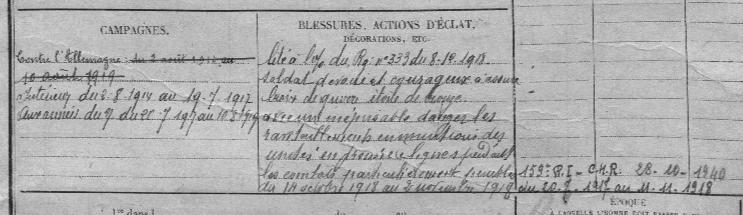 CAMPAGNES.
Contre l'Allemagne du 2 août 1914 au
10 août 1919
Intérieur du 2-8-1914 au 19-7-1917
Aux armées du 20-7-1917 au
BLESSURES, ACTIONS D'ÉCLAT,
DÉCORATIONS, ETC.
Cité à l'o/ du Rg. n° 333 du 8-12-1918.
Soldat dévoué et courageux a assuré
croix de guerre étoile de bronze
avec un méprisable danger les
ravitaillements en munitions des
unités en première lignes pendant
les combats particulièrement pénibles
du 14 octobre 1918 au 2 novembre 1918
159e R.I - C.M.R. 28-10-1940
du 20-7-1917 au 11-11-1918
ÉPOQUE
A LAQUELLE L'HOMME DOIT PASSER
dans l